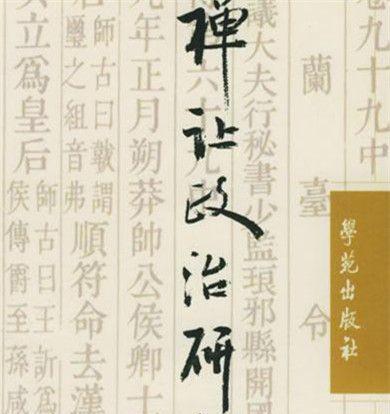 禅让政治研
學苑出版社
卷九十九中
蘭臺令
大夫行秘書少監琅邪縣開
六十九
年正月朔莽帥公侯卿士
師古曰韍謂
璽之組音弗
順符命去漢
立爲皇后
師古曰王訢爲
侯傳爵至孫咸